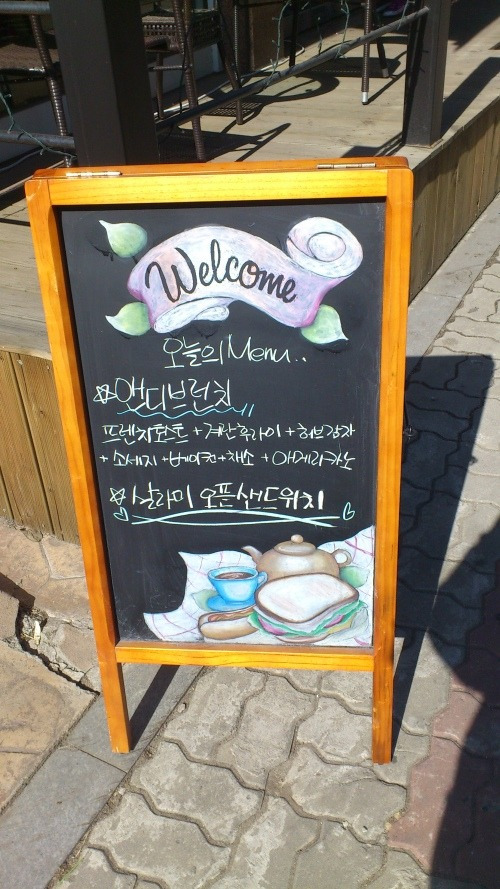 Welcome
오늘의 Menu..
앤디브런치
프렌치토스트 + 계란후라이 + 허브감자
+ 소세지 + 베이컨 + 채소 + 아메리카노
살라미 오픈샌드위치